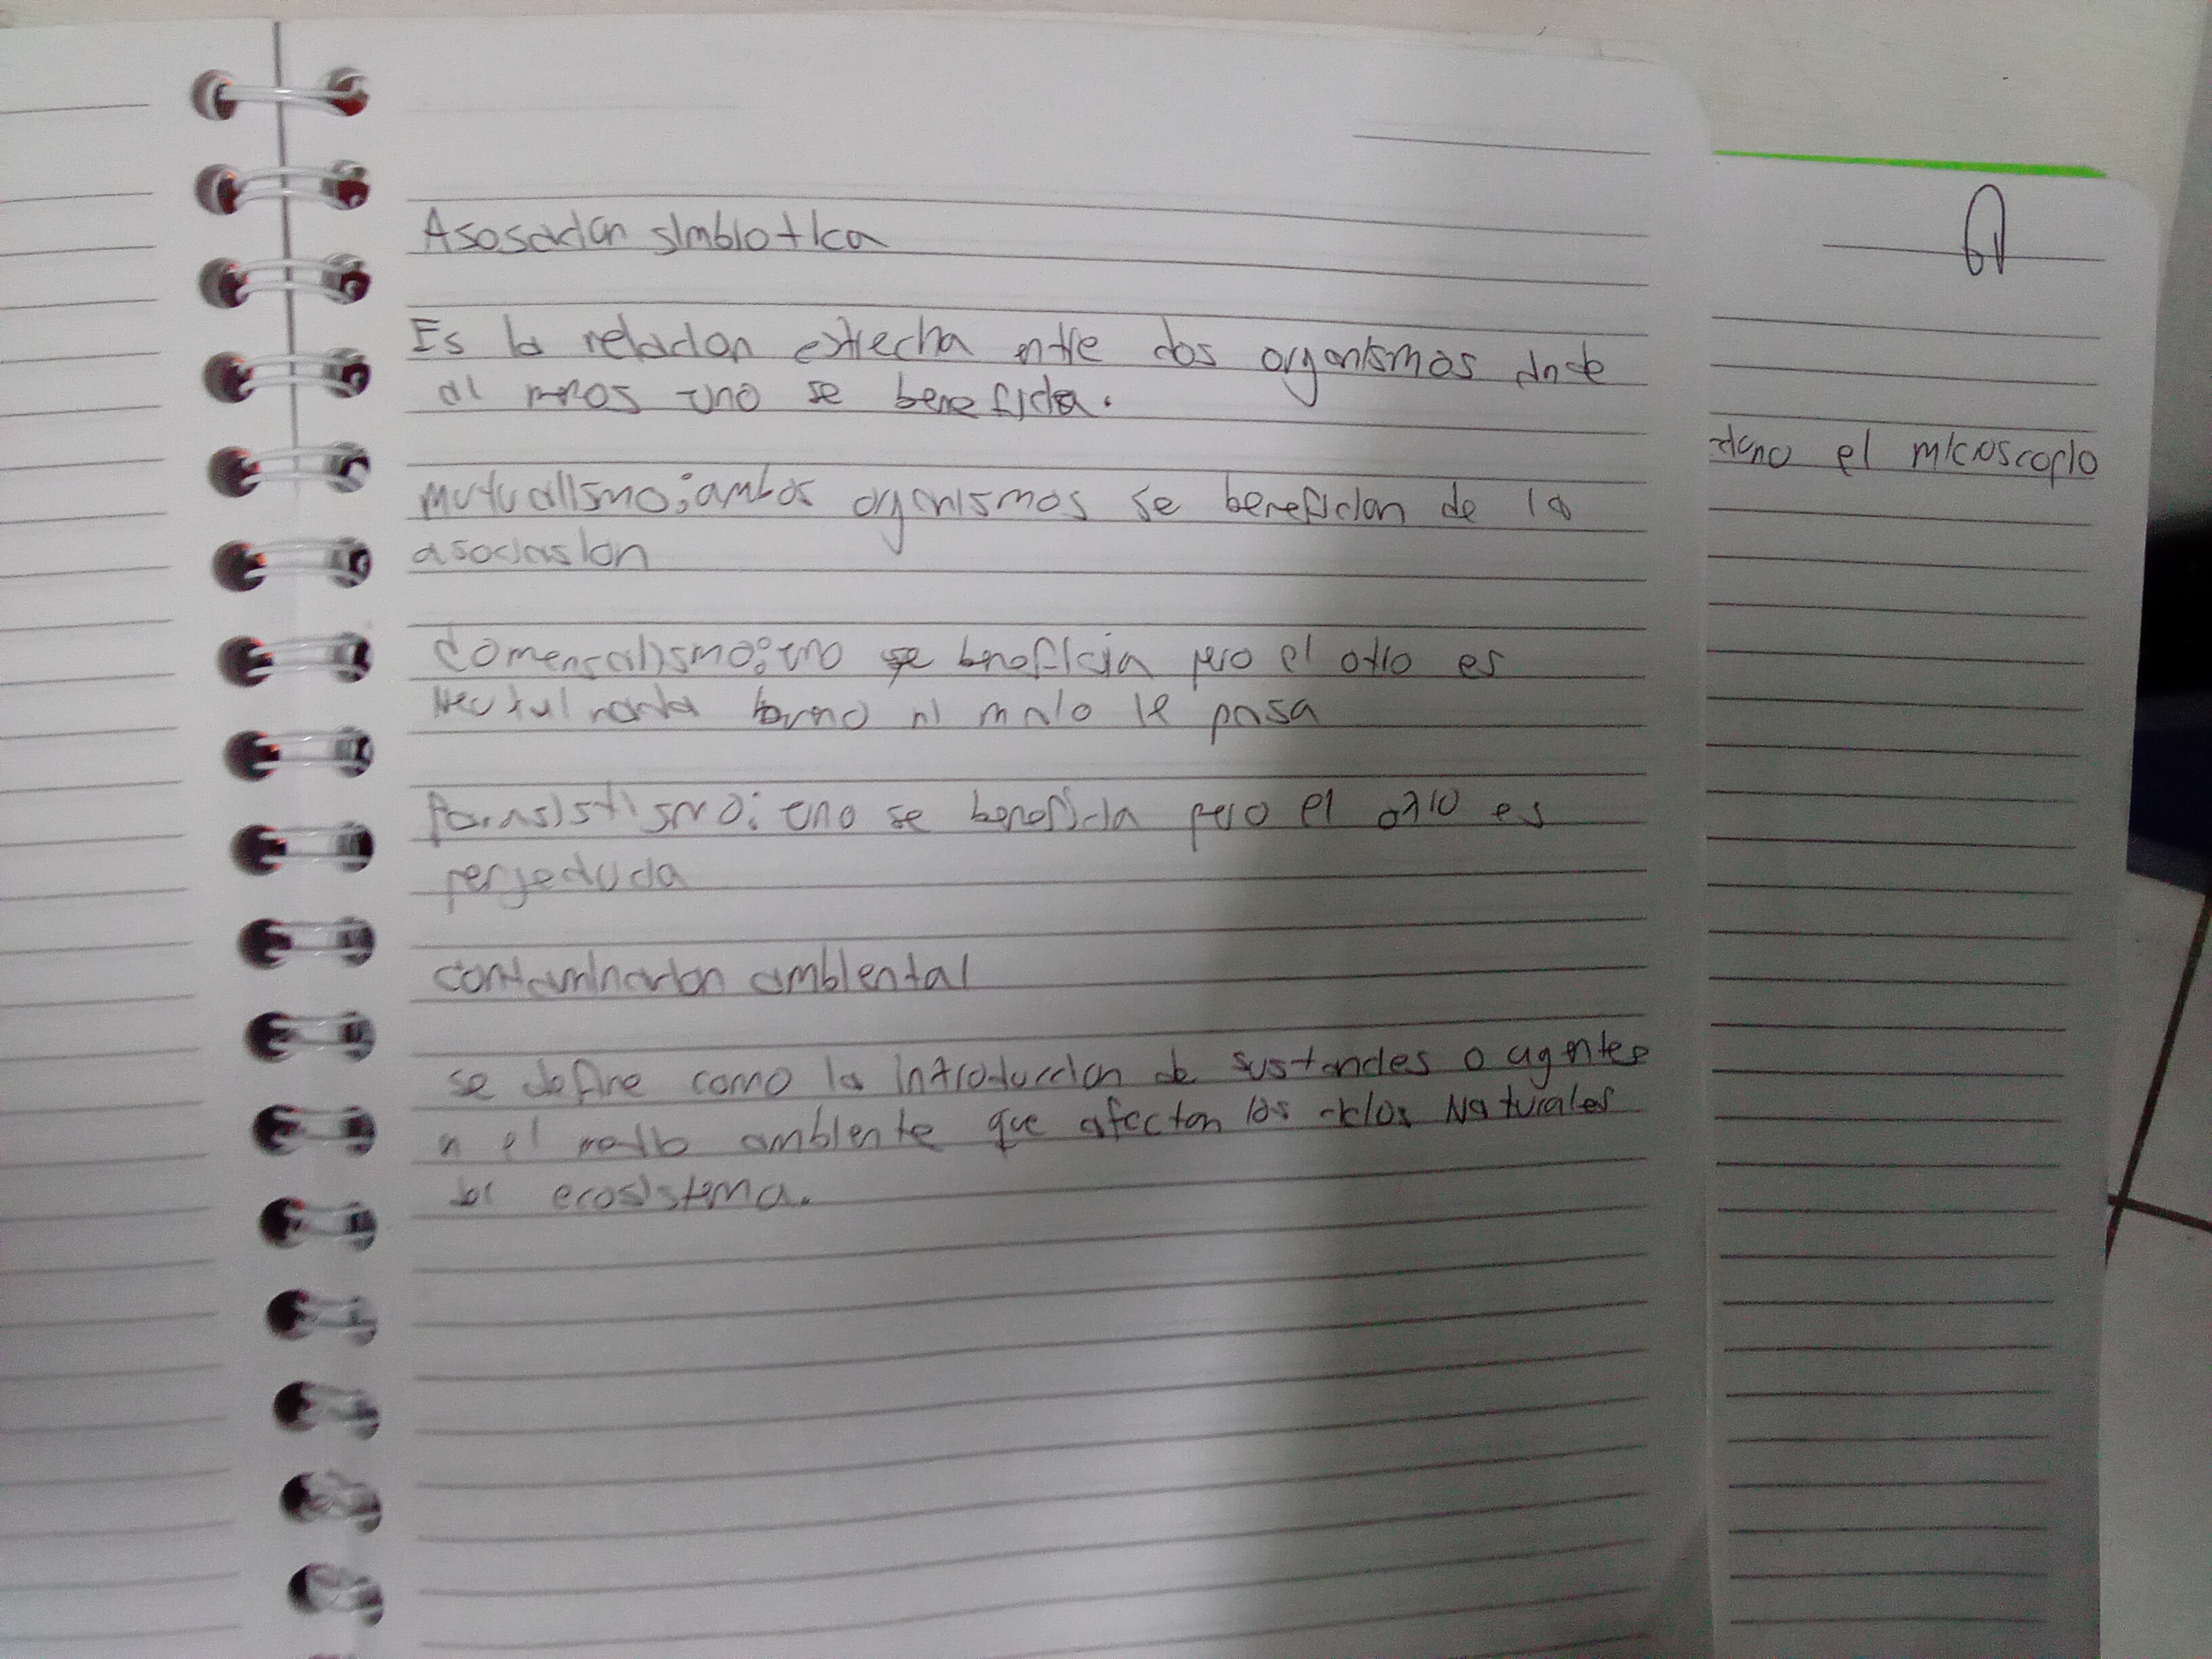 Asosacion simbiotica
Es la relacion extrecha entre dos organismos donde
al menos uno se beneficia.
mutualismo: ambos organismos se benefician de la
asociasion
Comensalismo: uno se beneficia pero el otro es
neutul nada bueno ni malo le pasa
Parasistismo: uno se beneficia pero el otro es
contaminacion ambiental
se define como la introduccion de sustancies o agentes
n el medio ambiente que afectan los ciclos Naturales
del ecosistema.
el microscopio